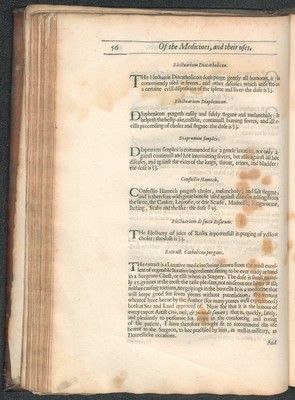 56 Of the Medicines, and their uses.
Electuarium Diacatholicon.
THis Electuarie Diacatholicon doth purge gently all humours, it is
commonly used in feavers, and other diseases, which arise from
a certain evill disposition of the spleen and liver: the dose is ℥j.
Electuarium Diaphenicon.
Diaphenicon purgeth easily and safely flegme and melancholy: it
helpeth the belly-ake, collike, continuall burning feavers, and all e-
vils proceeding of choler and flegme: the dose is ℥j.
Diaprunum simplex.
Diaprunum simplex is commended for a gentle lenitive, not only a-
gainst continuall and hot intermitting feavers, but also against all hot
diseases, and against the vices of the lungs, throat, reines, and bladder:
the dose is ℥j.
Confectio Hamech.
COnfectio Hamech purgeth choler, melancholy, and salt flegme;
and is therefore with great benefit used against diseases arising from
the same, the Canker, Leprosie, Madnesse,
Itching, Scabs and the like: the dose
Electuarium de succo Rosarum.
THe Electuary of juice of Roses is powerfull in purging of yellow
choler: the dose is ℥
Extract. Catholicum purgans.
This extract is a Laxative medicine, being drawn from the most excel-
lent of vegetable laxative ingredients, fitting to be ever ready at hand
in a Surgeons Chest, or else where in Surgery. The dose is small,
graines at the most: the taste pleasant, not
neither causing vomits, nor gripings in the bowels: it is a medicine that
will keep good for seven yeares without putrefaction; the virtues
whereof have beene by the Author (for many yeares well experienced)
both at Sea and Land approved of. Now for that it is the virtue of
every expert Artist Citò, tutò, & that is, quickly, safely,
and pleasantly to performe his in the comforting and curing
of his patient, I have therefore thought fit to commend the use
hereof to the Surgeon, to be practised by him, as well in military, as
Domesticke occasions.